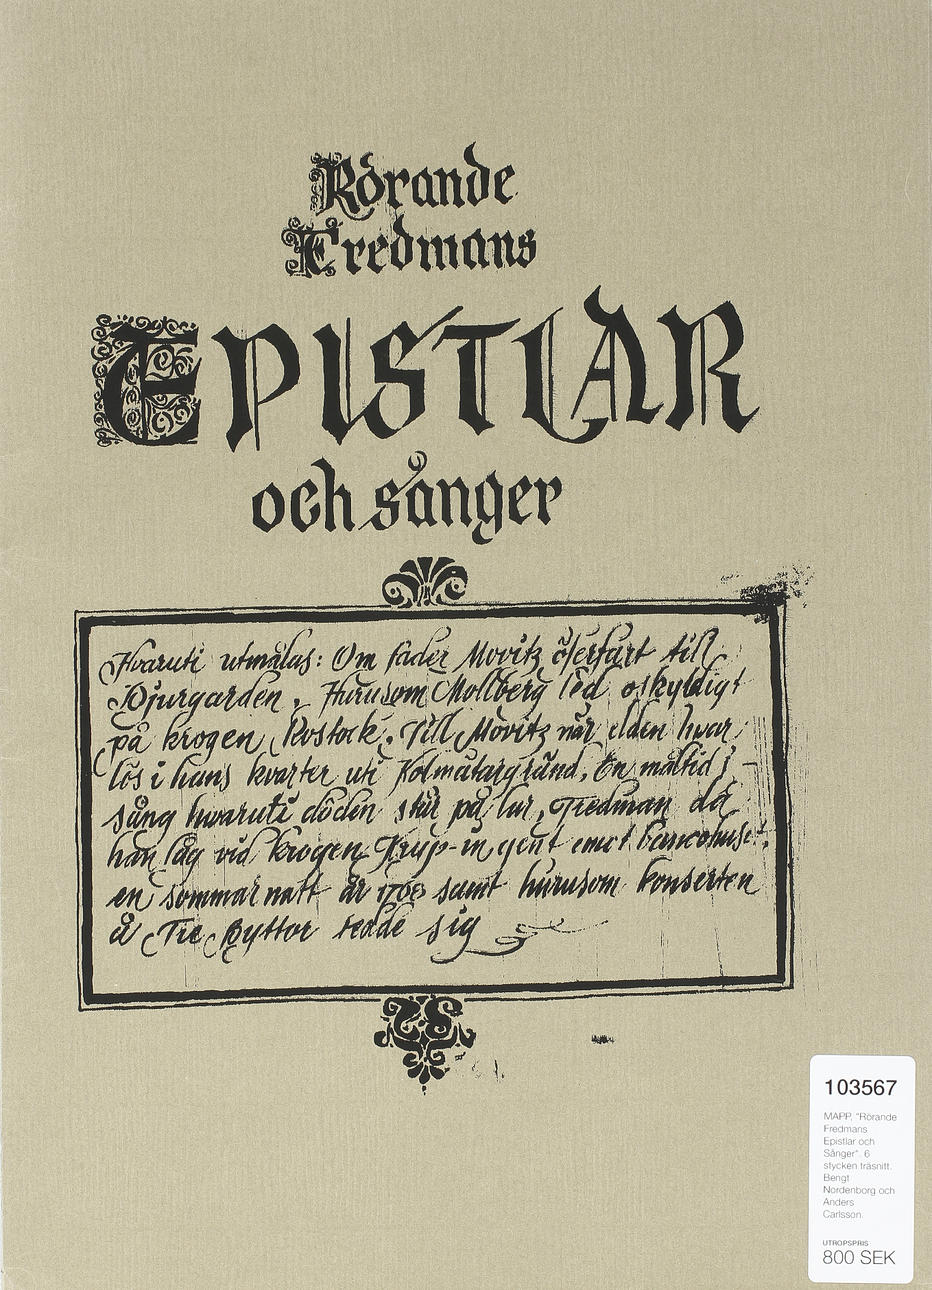 Rörande
Fredmans
EPISTLAR
och sånger
Hvaruti utmålas: Om fader Movitz öferfart till
Djurgården, Hurusom Mollberg led oskyldigt
på krogen Rostock, Till Movitz när elden hvar
lös i hans kvarter uti Kolmätargränd, En måltid i
sång hvaruti döden står på lur, Fredman då
han låg vid krogen Kryp-in gent emot bancohuset,
en sommarnatt år 1768 samt hurusom konserten
å Tre Byttor tedde sig
103567
MAPP, "Rörande
Fredmans
Epistlar och
Sånger". 6
stycken träsnitt.
Bengt
Nordenborg och
Anders
Carlsson.
UTROPSPRIS
800 SEK